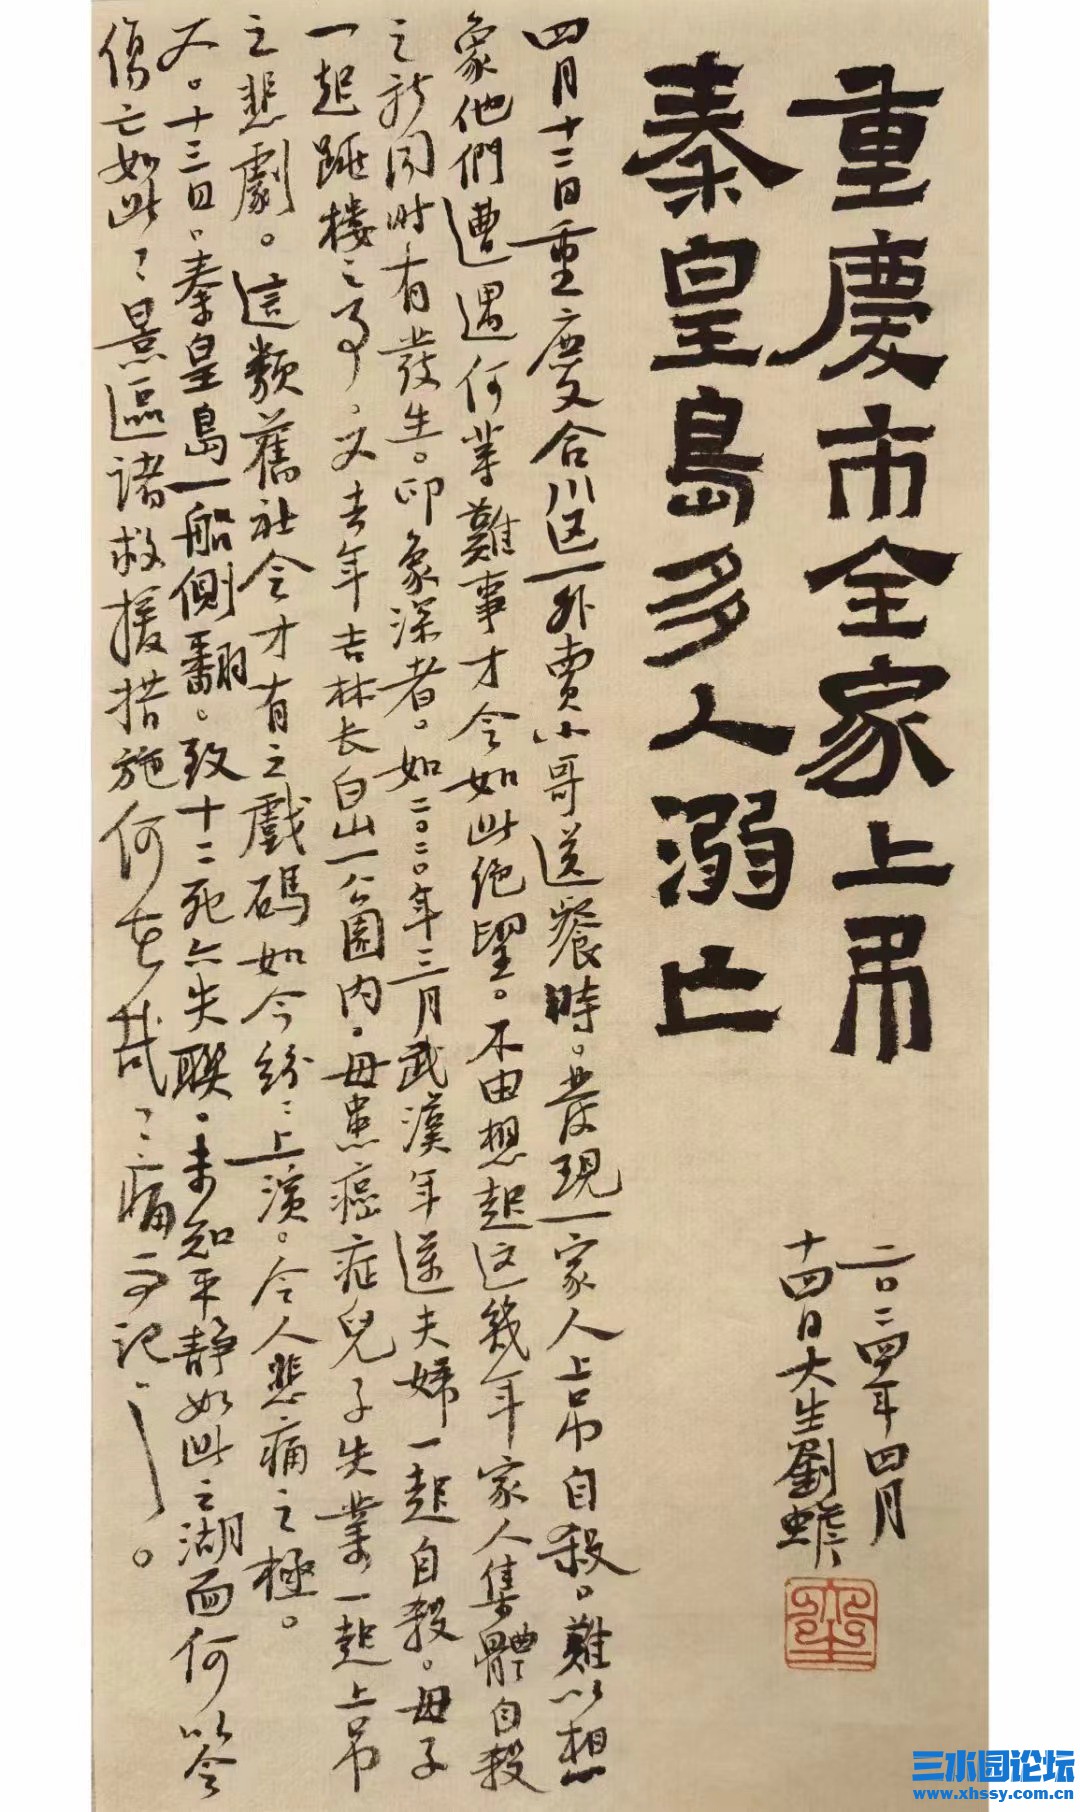 重慶市全家上吊
秦皇島多人溺亡
二〇二四年四月
十四日大生劉蟾
四月十二日重庆合川区一外賣小哥送餐時。發現一家人上吊自殺。難以想
象他們遭遇何等難事才令如此绝望。不由想起这幾年家人集體自殺
之新闻时有發生。印象深者。如二〇二〇年三月武漢年逆夫婦一起自殺。母子
一起跳楼之事。又去年吉林长白山一公園内。母患癌症兒子失業一起上吊
之悲劇。這類舊社会才有之戲碼如今紛〻上演。令人悲痛之極。
又。十三日。秦皇島一船侧翻。致十二死六失联。未知平静如此之湖面何以令
傷亡如此〻景區諸救援措施何在哉〻痛而记〻。
三水园论坛
www.xhssy.com.cn